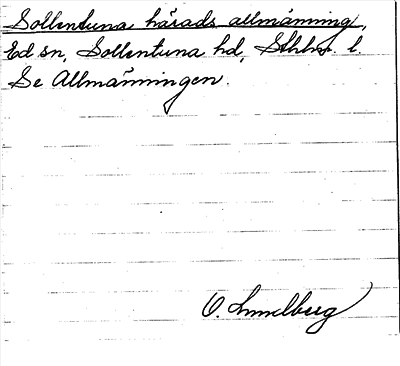 Sollentuna härads allmänning,
Ed sn, Sollentuna hd, Sthlms l.
Se Allmänningen.
O. Lundberg